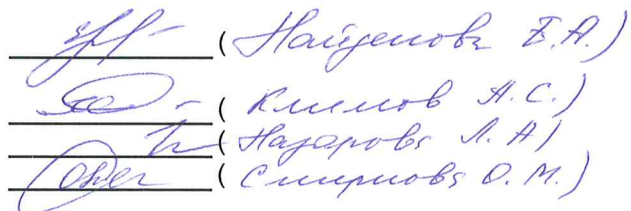 (Найденова Е.А.)
(Климов А.С.)
(Назарова Л.А)
(Смирнова О.М.)